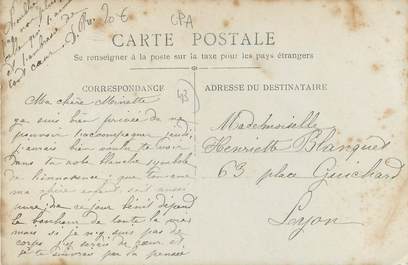 20€
CPA
CARTE POSTALE
Se renseigner à la poste sur la taxe pour les pays étrangers
CORRESPONDANCE
43
ADRESSE DU DESTINATAIRE
Ma chère Minette
suis bien privée de ne
pouvoir t'accompagne jeudi
j'aurais bien voulu te voir
dans ta robe blanche symbole
de l'innocence; que ton âme
ma chère enfant soit aussi
pure; de ce jour béni dépend
le bonheur de toute la vie
mais si je n'y suis pas de
corps j'y serais de cœur et
je te suivrai par la pensée
Mademoiselle
Henriette Blanquet
63 place Guichard
Lyon